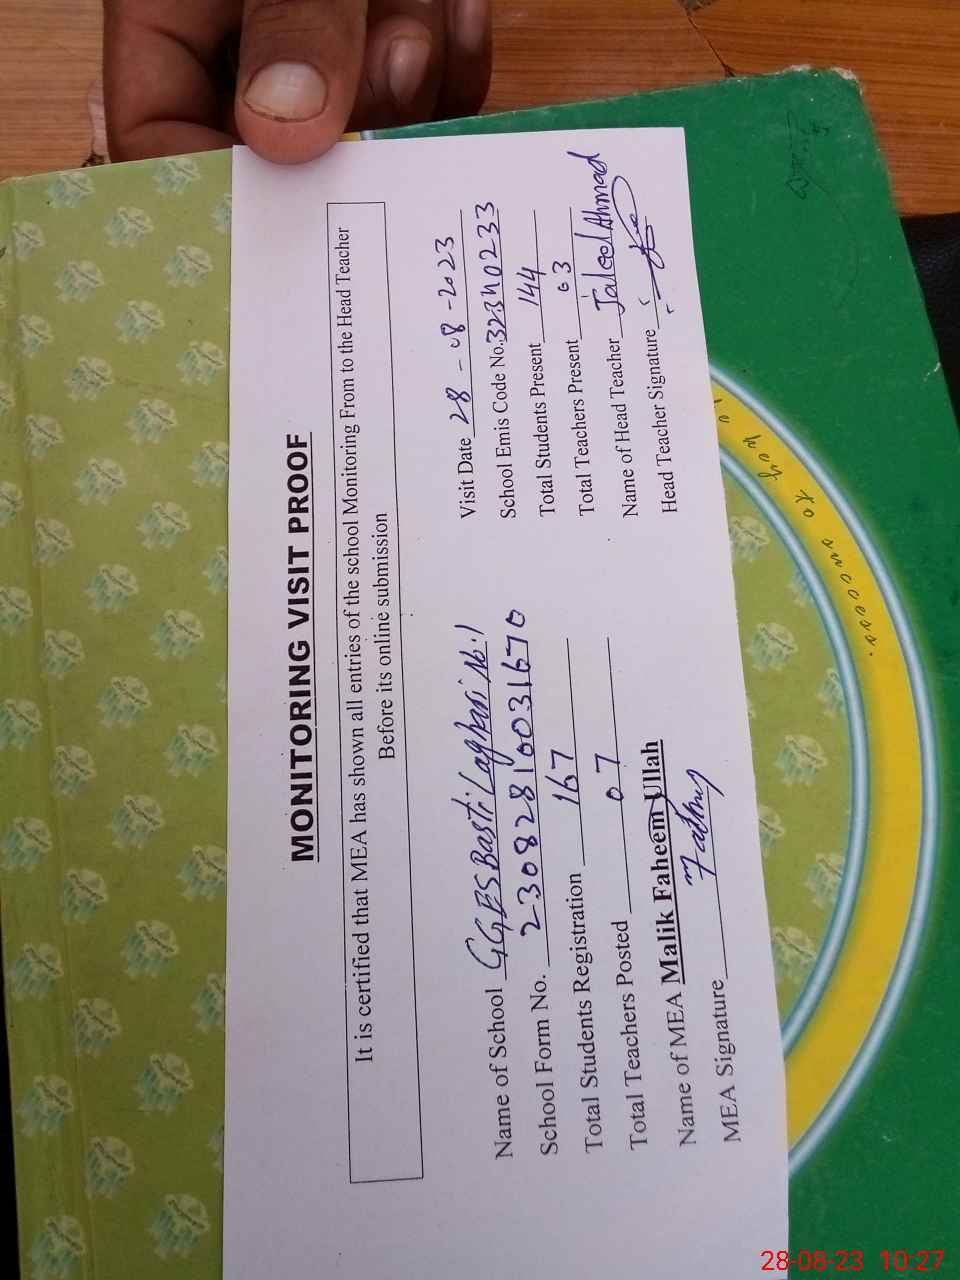 MONITORING VISIT PROOF
It is certified that MEA has shown all entries of the school Monitoring From to the Head Teacher
Before its online submission
Name of School GGES Basti Laghari No.1
School Form No. 23082810031670
Total Students Registration 167
Total Teachers Posted 07
Name of MEA Malik Faheem Ullah
MEA Signature
Visit Date 28-08-2023
School Emis Code No. 32340233
Total Students Present 144
Total Teachers Present 03
Name of Head Teacher Jaleel Ahmad
Head Teacher Signature
to success.
28-08-23 10:27